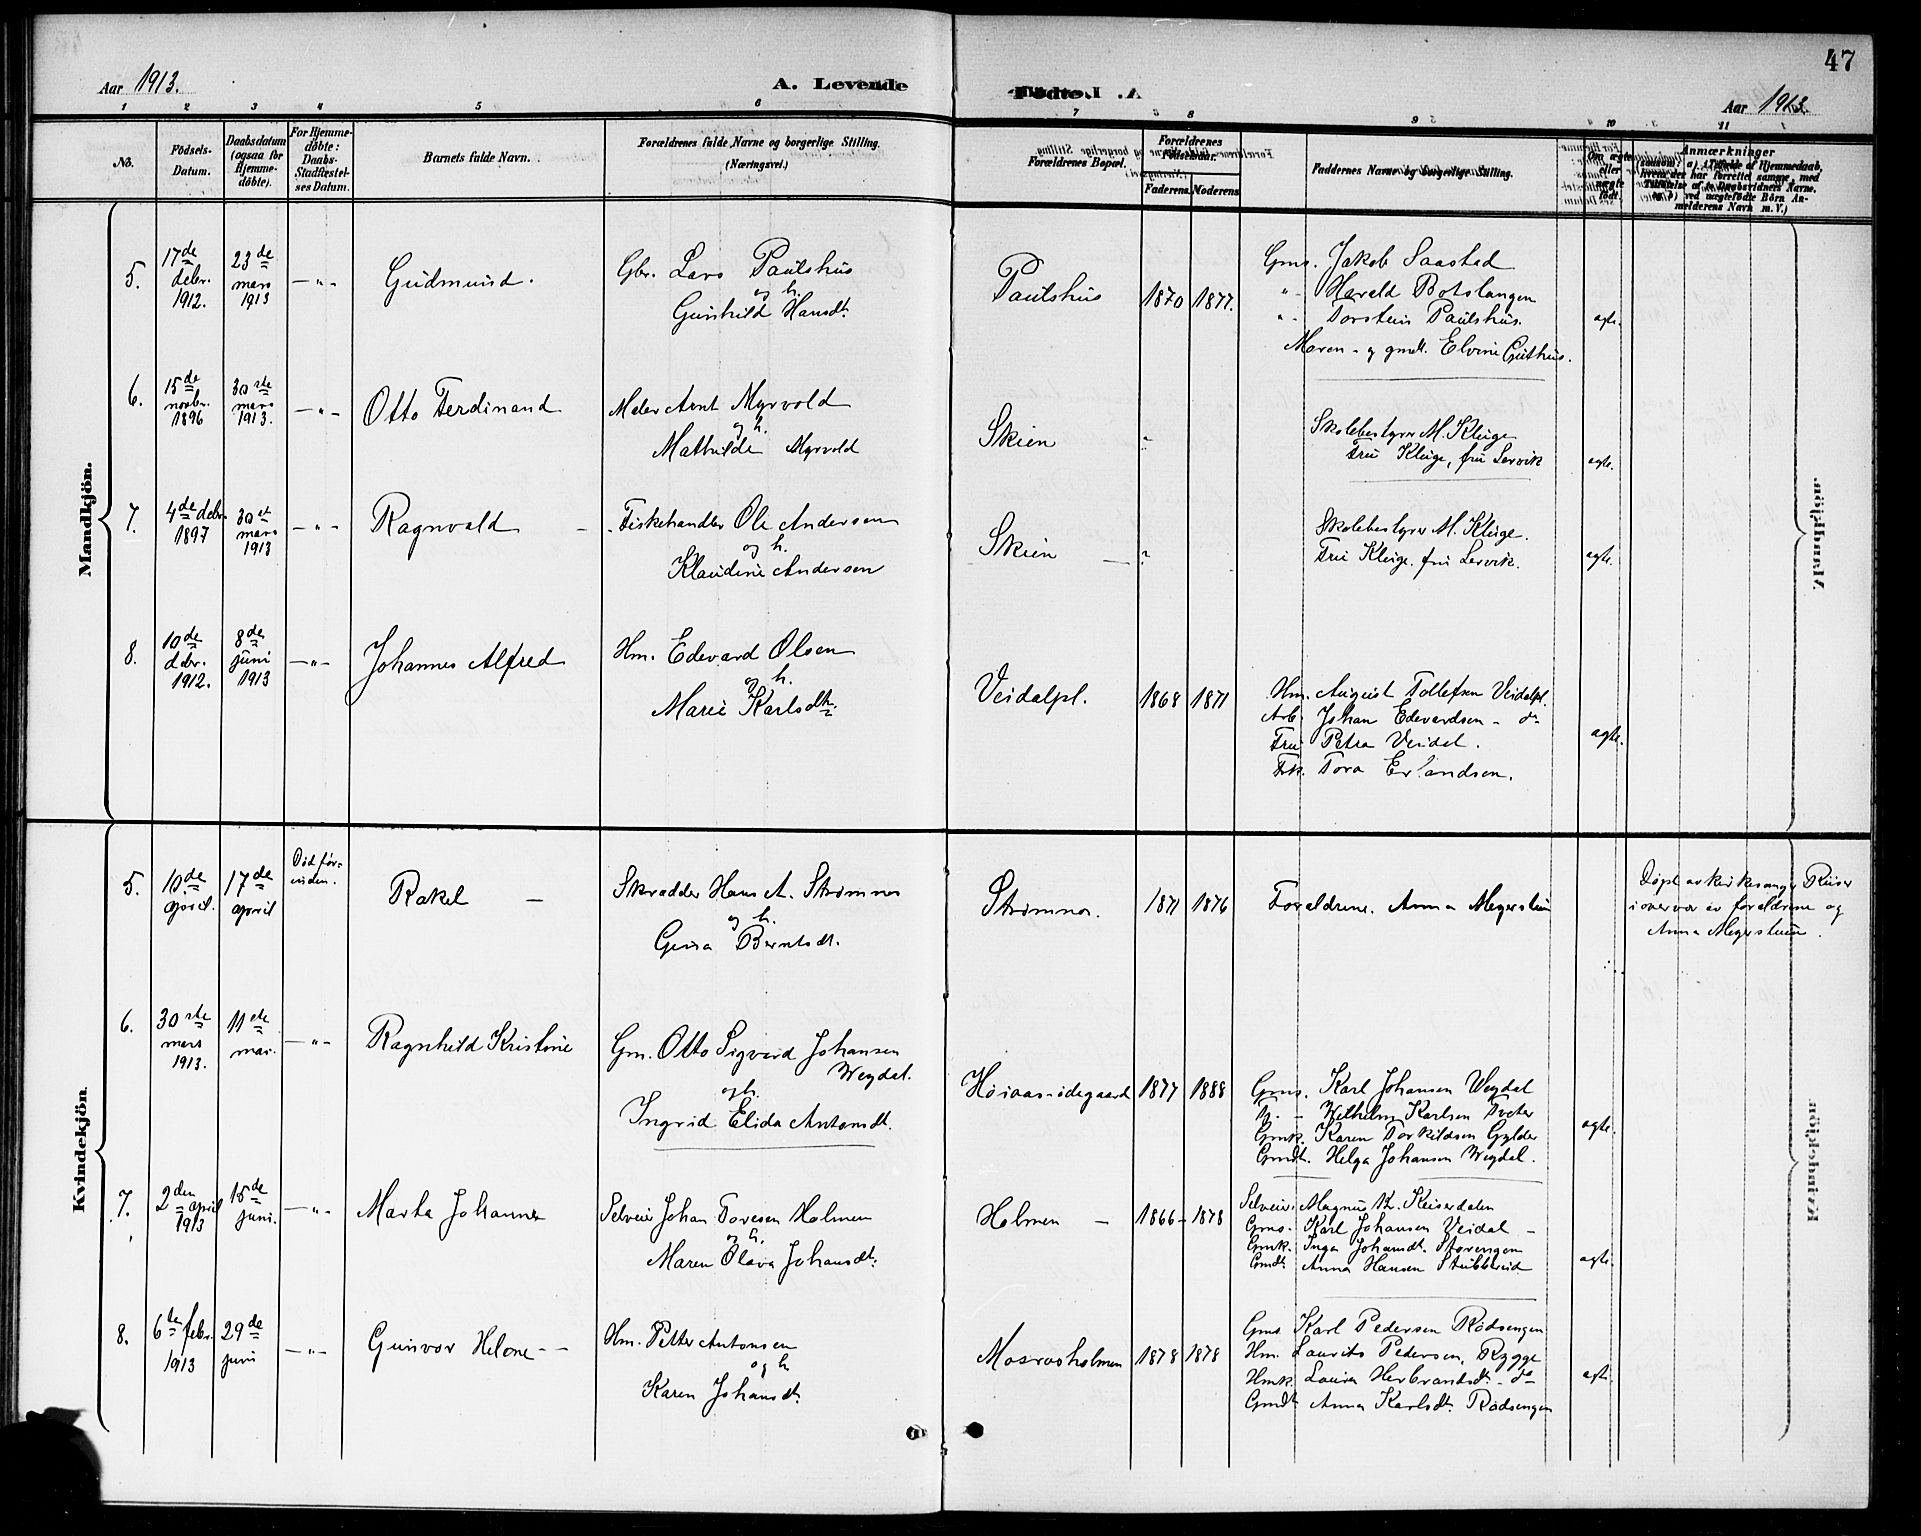 47
Aar 1913.
A. Levende
Fødte.
Aar 1913.
1 2 3 4 5 6 7 8 9 10 11
No.
Födsels-Datum.
Daabsdatum (ogsaa for Hjemme-döbte).
For Hjemme-döbte: Daabs-Stadfæstel-ses Datum.
Barnets fulde Navn.
Forældrenes fulde Navne og borgerlige Stilling.
(Næringsvei.)
Forældrenes Bopæl.
Forældrenes Födselsaar.
Faderens.
Moderens.
Faddernes Navne og borgerlige Stilling.
Om ægte eller uægte født.
Anmærkninger
Mandkjön.
5. 17de debr. 1912. 23de mars 1913 —"— Gudmund.
Gbr. Lars Paulshus
og h.
Gunhild Hansdt.
Paulshus 1870 1877.
Gms. Jakob Saastad
"- Harald Botslangen
"- Torstein Paulshus.
Maren - og gmdt. Elvine Guthus.
agte.
6. 15de novbr. 1896 30te mars 1913. —"— Otto Ferdinand
Maler Arnt Myrvold
og h.
Mathilde Myrvold
Skien "
Skolebestyrer M. Kluge
Fru Kluge, fru Lervik
agte.
7. 4de debr. 1897 30te mars 1913 —"— Ragnvald —
Fiskehandler Ole Andersen
og h.
Klaudine Andersen
Skien — "
Skolebestyrer M. Kluge.
Fru Kluge. fru Lervik.
agte.
8. 10de debr. 1912. 8de juni 1913 —"— Johannes Alfred
Hm. Edevard Olsen
og h.
Marie Karlsdtr.
Veidalpl. 1868 1871
Hm. August Tollefsen Veidalpl.
Arb. Johan Edevardsen - do
Fru Petra Veidal.
Frk. Tora Erlandsen.
agte.
Kvindekjön
5. 10.de april. 17de april Död før-inden. Rakel —
Skrædder Hans A. Strømnes
og h.
Gina Berntsdt.
Strømnes. 1871 1876
Forældrene. Anna Megerstuen
Døpt av kirkesanger Riiser
i overvær av forældrene og
Anna Megerstuen.
6. 30te mars 1913. 11te mai. —"— Ragnhild Kristine
Gm. Otto Sigvard Johansen
Weydal.
og h.
Ingrid Elida Antonsdt.
Høiaas-ødegaard 1877 1888
Gms. Karl Johansen Weydal
Wilhelm Karlsen Tveter
Gmk. Karen Torkildsen Gylder
Gmdt. Helga Johansen Weydal.
agte.
7. 2den april 1913 15de juni. —"— Marta Johanne
Selveier Johan Toresen Holmen
og h.
Maren Olava Johansdt.
Holmen — 1866 - 1878
Selveier Magnus Kr. Keiserdalen
Gms. Karl Johansen Veidal —
Gmk. Inga Johansdt. Storengen
Gmdt. Anna Hansen Stubberud
agte.
8. 6te febr. 1913 29de juni —"— Gunvor Helene - -
Hm. Petter Antonsen
og h
Karen Johansdt.
Mosrosholmen 1878 1878
Gms. Karl Pedersen Rødsengen
Hm. Laurits Pedersen, Rygge
Hmk. Laura Herbrandsdt. - do
Gmdt. Anna Karlsdt. Rødsengen
agte.